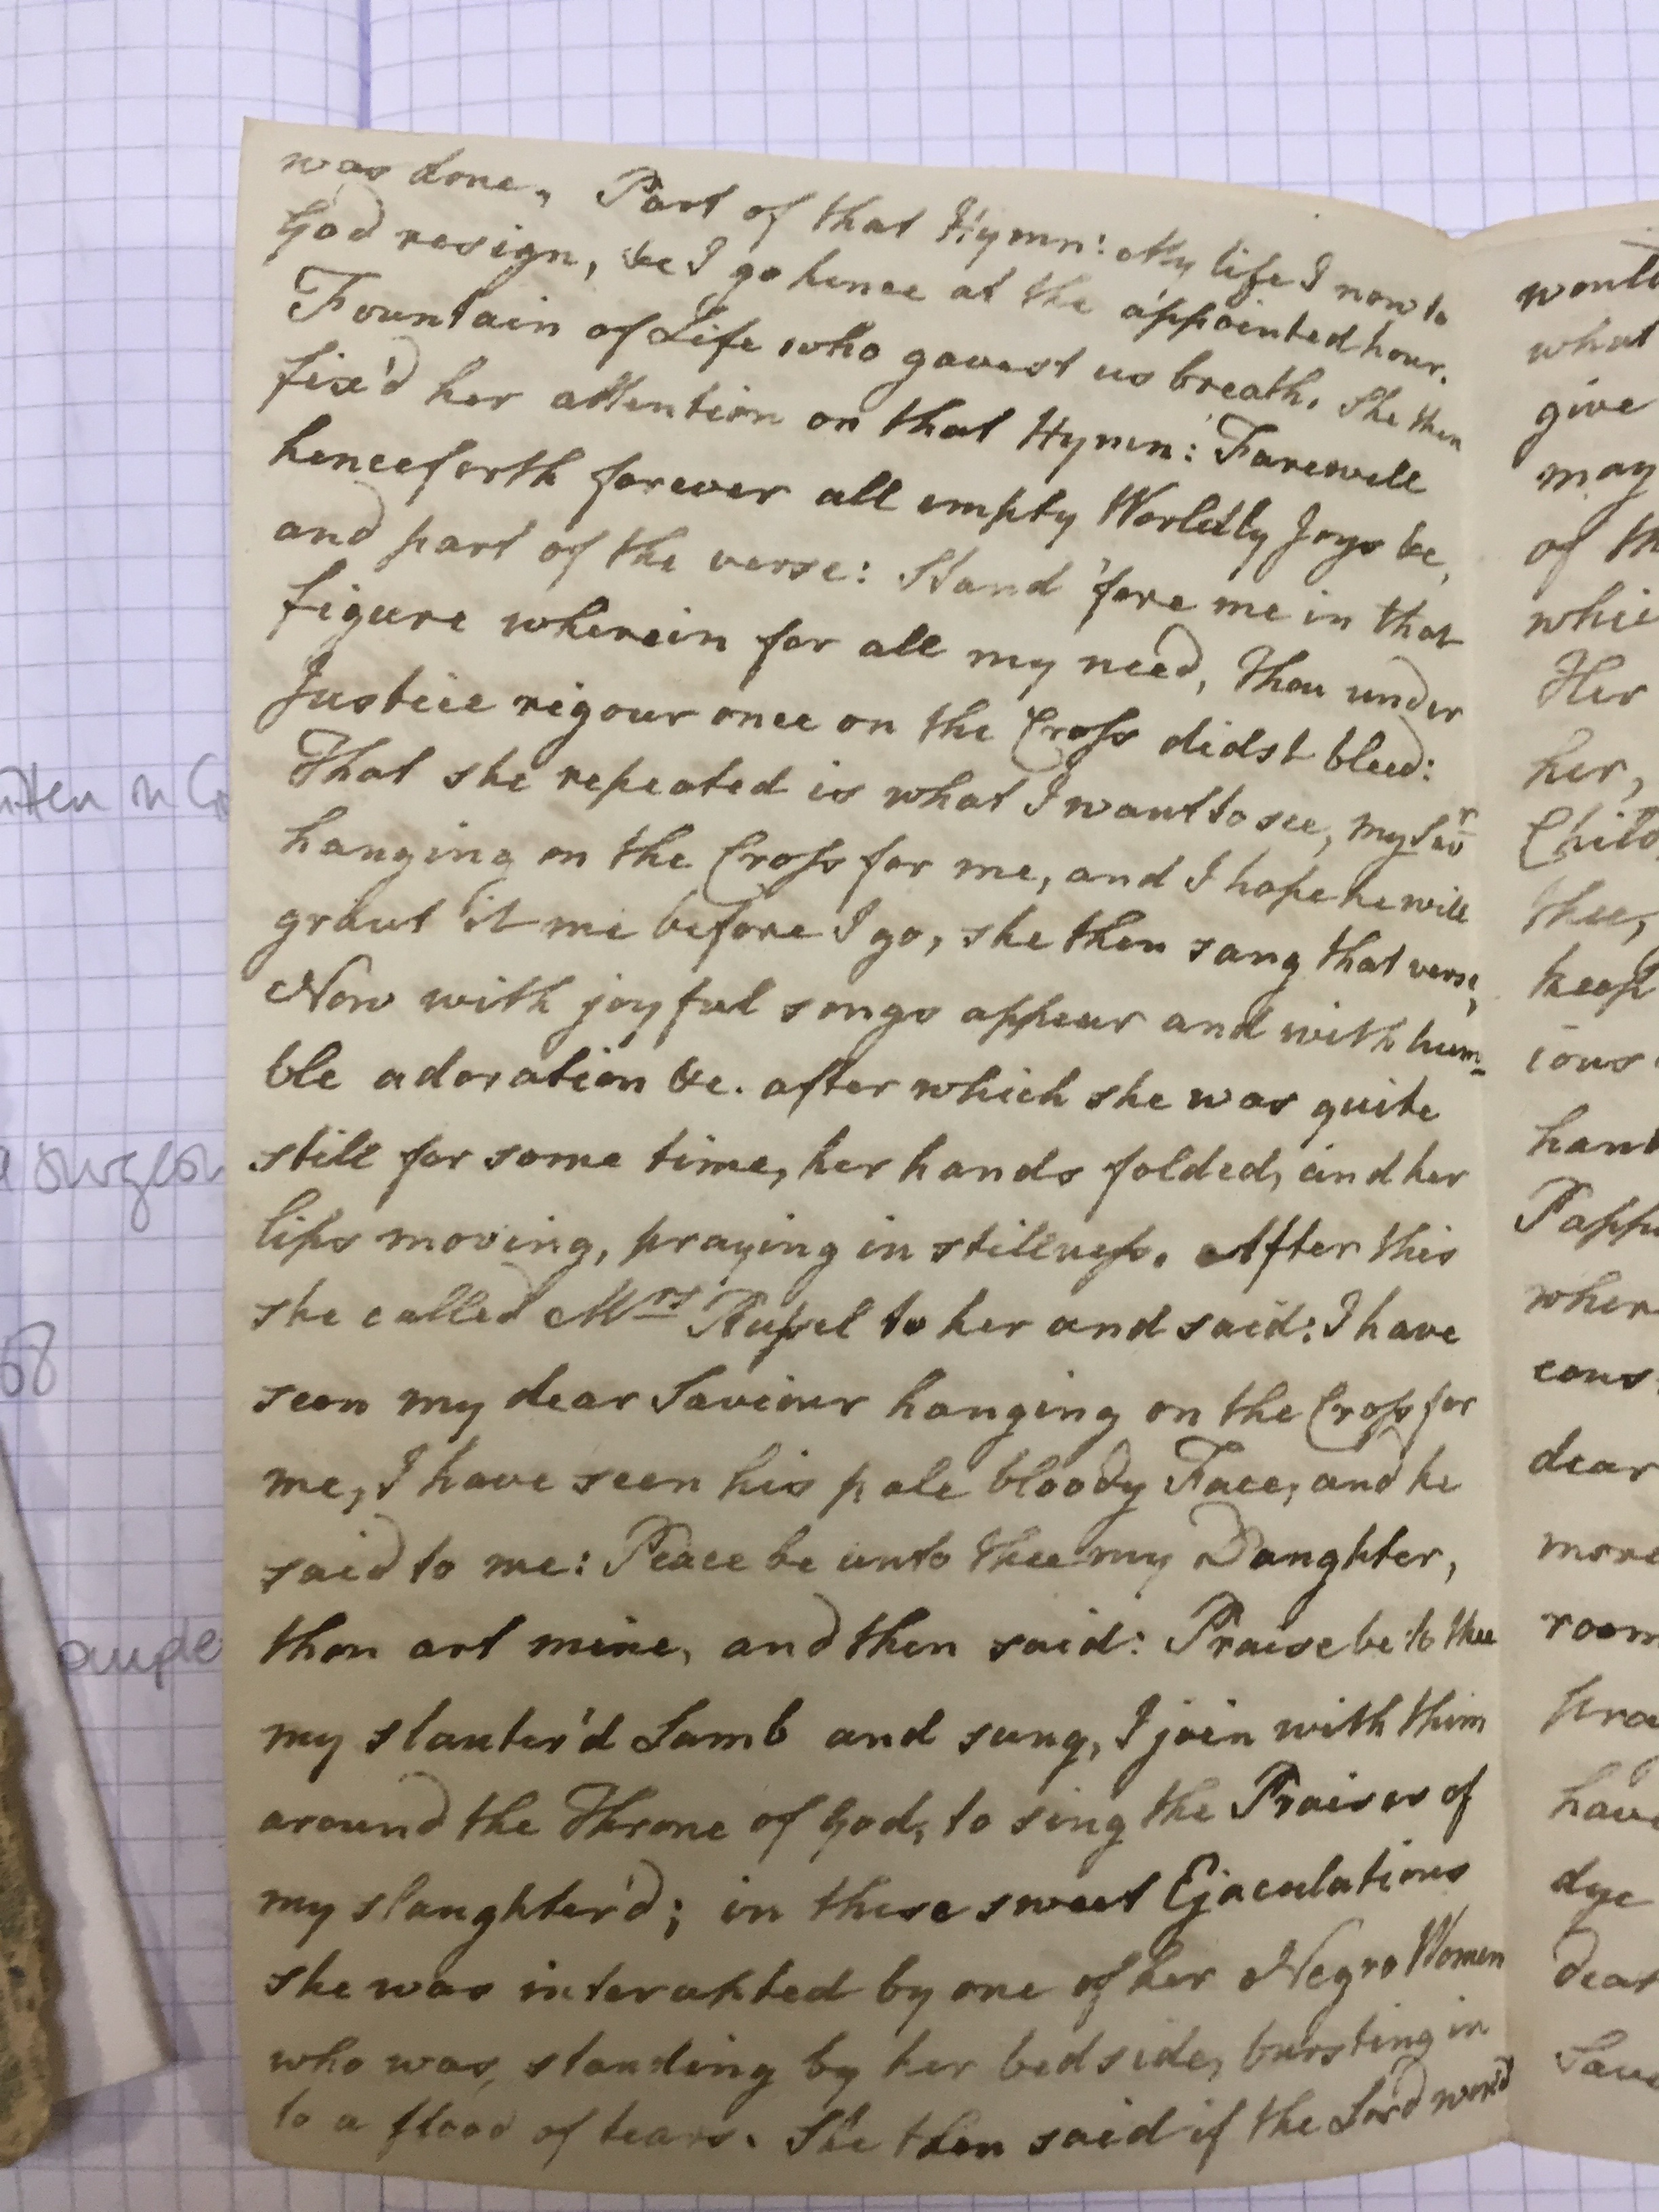 was done, Part of that Hymn: My life I now to
God resign, &c I go hence at the appointed hour.
Fountain of Life who gavest us breath. She then
fix'd her attention on that Hymn: Farewell
henceforth forever all empty Worldly Joys &c,
and part of the verse: Stand 'fore me in that
figure wherein for all my need, Thou under
Justice rigour once on the Cross didst bleed:
That she repeated is what I want to see, my Savr
hanging on the Cross for me, and I hope he will
grant it me before I go, she then sang that verse,
Now with joyful songs appear and with hum-
ble adoration &c. after which she was quite
still for some time, her hands folded, and her
lips moving, praying in stillness. After this
she called Mrs Russel to her and said: I have
seen my dear Saviour hanging on the Cross for
me, I have seen his pale bloody Face, and he
said to me: Peace be unto thee my Daughter,
thou art mine, and then said: Praise be to thee
my slauter'd Lamb and sung, I join with them
around the Throne of God, to sing the Praises of
my slaughter'd; in these sweet Ejaculations
she was interupted by one of her Negro Women
who was, standing by her bedside, bursting in
to a flood of tears. She then said if the Lord wou'd
would
what
give
may
of th
whic
Her
her,
Child
thee,
keep
ious
hand
Pappa
wher
cons
dear
more
room
pra
have
dye
dear
Savi
68